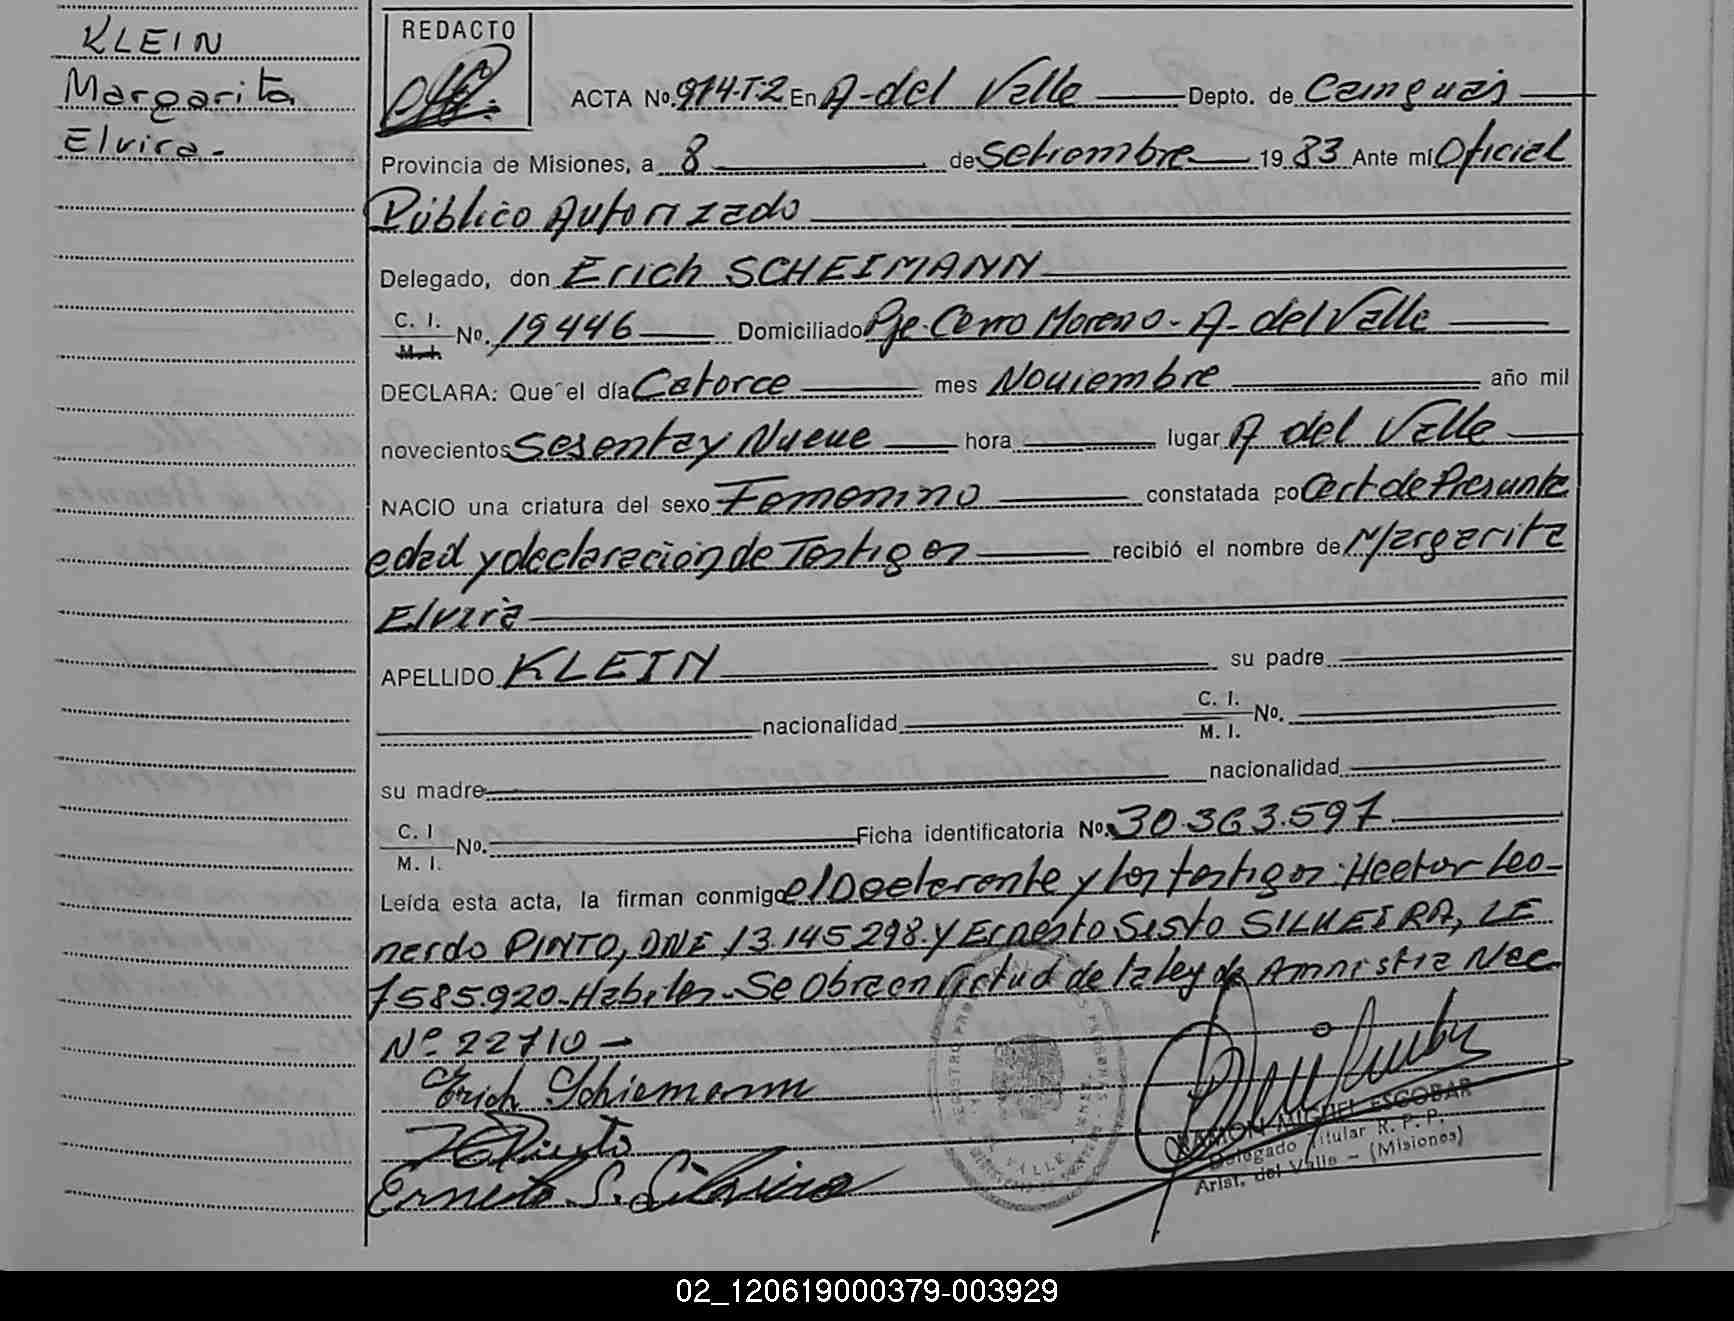 KLEIN
Margarita
Elvira-
REDACTO
ACTA No. 974-T-2 En A- del Valle Depto. de Cainguás
Provincia de Misiones, a 8 de Setiembre 19 83 Ante mí Oficial
Público Autorizado
Delegado, don Erich SCHEIMANN
C. I. M. I. No. 19446 Domiciliado Pje. Cerro Moreno - A- del Valle
DECLARA: Que el día Catorce mes Noviembre año mil
novecientos Sesenta y Nueve hora lugar A del Valle
NACIO una criatura del sexo Femenino constatada po Cert de Presunta
edad y declaración de Testigos recibió el nombre de Margarita
Elvira
APELLIDO KLEIN su padre
nacionalidad C. I. M. I. No.
su madre nacionalidad
C. I M. I. No. Ficha identificatoria No. 30.363.597
Leída esta acta, la firman conmigo el Declarante y los testigos: Hector Leo-
nardo PINTO, DNI 13.145298. y Ernesto Sisto SILVEIRA, LE
7585920-Habiles-Se Obra en virtud de la ley de Amnistia Nac
Nº 22710-
Erich Schiemann
Ernesto S. Silveira
RAMON MIGUEL ESCOBAR
Delegado Titular R. P. P.
Arist. del Valle - (Misiones)
02_120619000379-003929